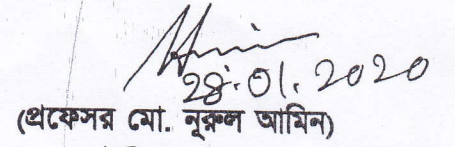 28.01.2020
(প্রফেসর মো. নূরুল আমিন)